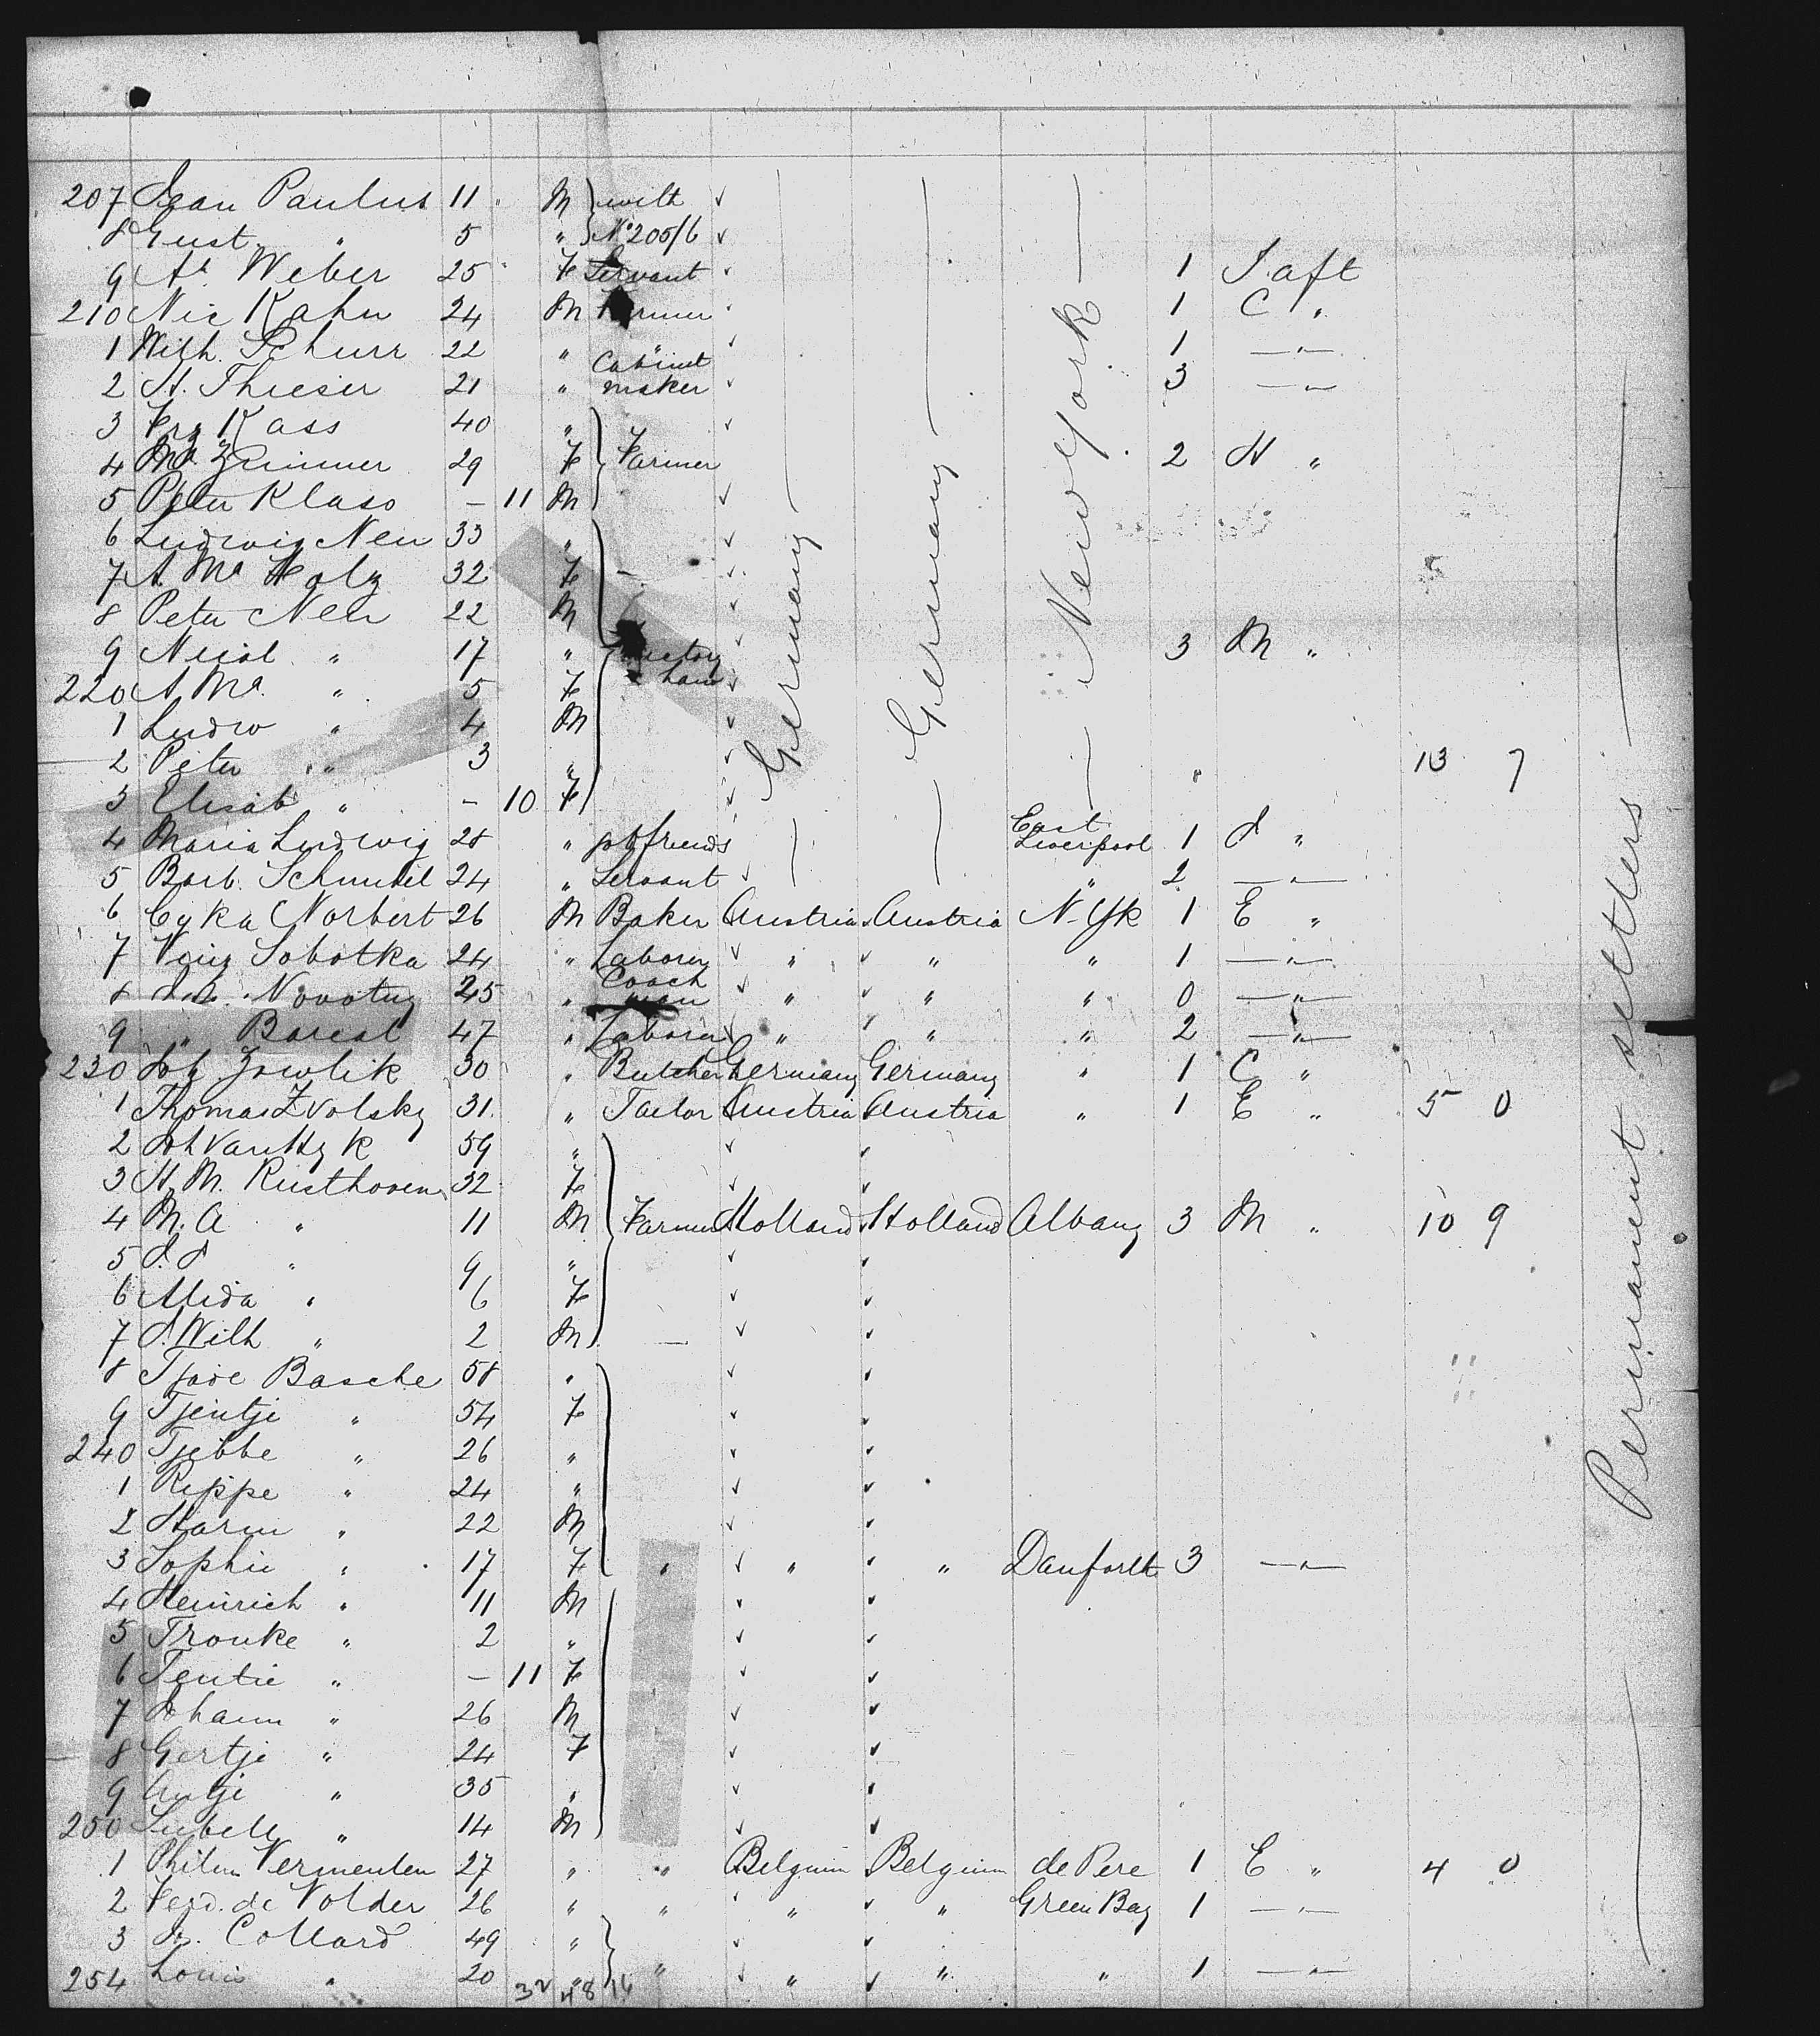 207 Jean Paulus 11 M with
8 Gust. " 5 " No 205/6
9 At. Weber 25 F Servant 1 J. aft
210 Nic Kahn 24 M Farmer 1 C "
1 Wilh. Schurr 22 " " 1 — " —
2 H. Thieser 21 " Cabinet maker 3 — " —
3 Frz Kass 40 "
4 Ma. Zimmer 29 F Farmer 2 H "
5 Peter Klass — 11 M
6 Ludwig Neu 33 "
7 A. Ma Holz 32 F
8 Peter Neu 22 M
9 Nicol " 17 " Factory hand 3 M "
220 A. Ma. " 5 F
1 Ludw " 4 M
2 Peter " 3 " " 13 7
3 Elisab " — 10 F
Germany
Germany
New York
4 Maria Ludwig 28 " friends East Liverpool 1 J "
5 Barb. Schmitel 24 " Servant " 2 — " —
6 Cyka Norbert 26 M Baker Austria Austria N-Yk 1 E "
7 Sobotka 24 " Laborer " " " 1 — " —
8 Novotny 45 " Coach man " " " 0 — " —
9 " Bareat 47 " Laborer " " " 2 — " —
230 Joh Zowlik 30 " Butcher Germany Germany " 1 C "
1 Thomas Zvolsky 31 " Tailor Austria Austria " 1 E " 5 0
2 Joh Van Hyk 59 "
3 H. M. Rusthoven 32 F
4 M. A " 11 M Farmer Holland Holland Albany 3 M " 10 9
5 J. J " 9 "
6 Alida " 6 F
7 J. Wilh " 2 M
8 Tjade Basche 58 "
9 Tjentje " 54 F
240 Tjebbe " 26 "
1 Reppe " 24 "
2 Harm " 22 M
3 Sophie " 17 F " " " Danforth 3 — " —
4 Heinrich " 11 M
5 Tronke " 2 "
6 Tentie " — 11 F
7 Johann " 26 M
8 Gertje " 24 F
9 Antje " 35 "
250 " 14 M
1 Philem Vermeulen 27 " " Belgium Belgium de Pere 1 E " 4 0
2 Ferd. de Volder 26 " " " " Green Bay 1 — " —
3 Collard 49 "
254 Louis " 20 " " " " " 1 — " —
32 48 16
Permanent settlers